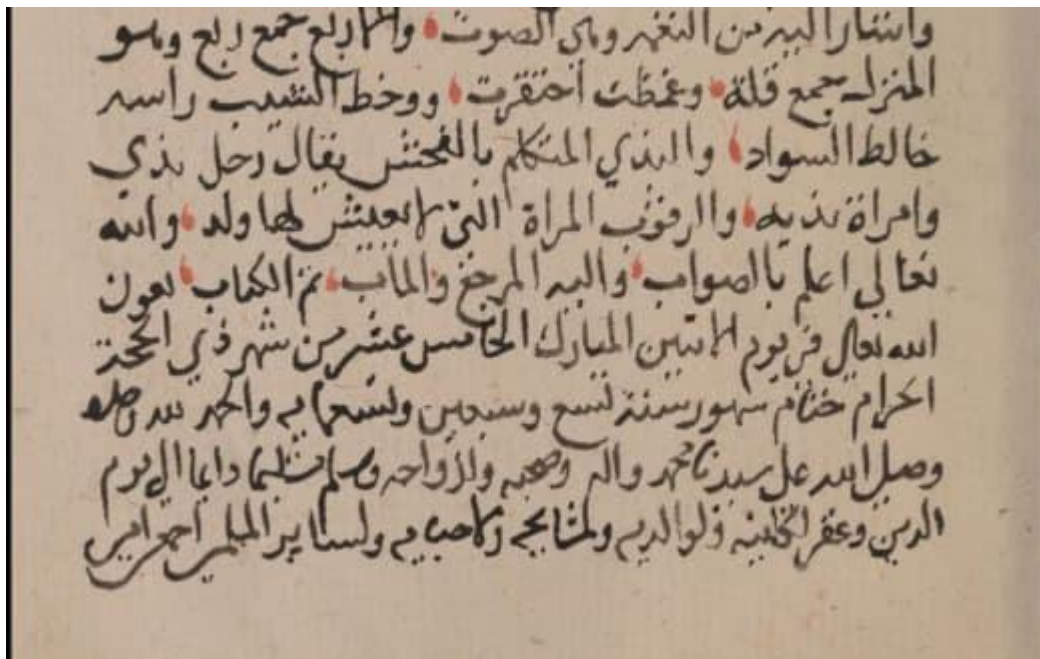 وانتشار البيد من النغم وهي الصوت والاربع جمع ربع وهو
المنزل جمع قلة وغمظت احتقرت ووخط الشيب راسه
خالط السواد والبذي المتكلم بالفحش يقال رجل بذي
وامراة بذيه والرقوب المراة التي لا يعيش لها ولد والله
تعالي اعلم بالصواب واليه المرجع والماب تم الكتاب بعون
الله تعالي في يوم الاثنين المبارك الخامس عشر من شهر ذي الحجة
الحرام ختام شهور سنة تسع وسبعين وتسعمايه والحمد لله
وصلي الله علي سيدنا محمد واله وصحبه وازواجه وسلم تسليما دايما الي يوم
الدين وغفر لكاتبه ولوالديه ولمشايخه ولاحبابه ولساير المسلمين اجمعين امين